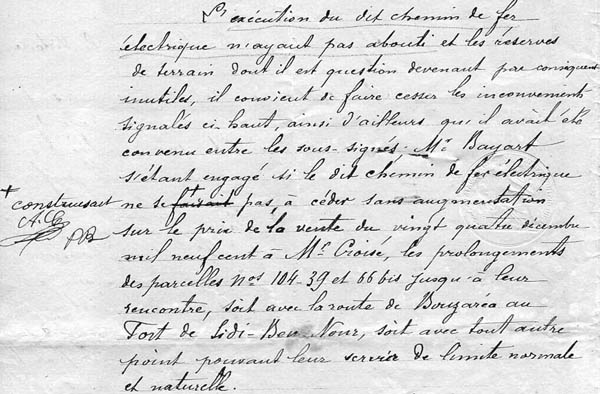 L'exécution du dit chemin de fer
électrique n'ayant pas abouti et les réserves
de terrain dont il est question devenant par conséquent
inutiles, il convient de faire cesser les inconvenients
signalés ci-haut, ainsi d'ailleurs qu'il avait été
convenu entre les sous-signés. Mr Bayart
s'étant engagé si le dit chemin de fer électrique
ne se faisait pas, à céder sans augmentation
+
construisait
A.C
sur le prix de la vente du vingt quatre décembre
mil neuf cent à Mr Croisé, les prolongements
des parcelles Nos 104-39 et 66 bis jusqu'à leur
rencontre, soit avec la route de Bouzaréa au
Fort de Sidi-Ben-Nour, soit avec tout autre
point pouvant leur servir de limite normale
et naturelle.